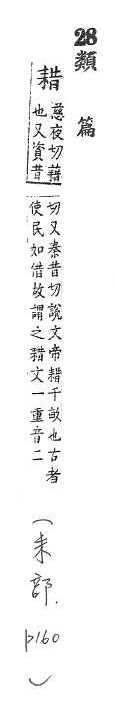 28類篇
耤 慈夜切藉也又資昔
切又秦昔切說文帝耤千畝也古者
使民如借故謂之耤文一重音二
(耒部.p160)